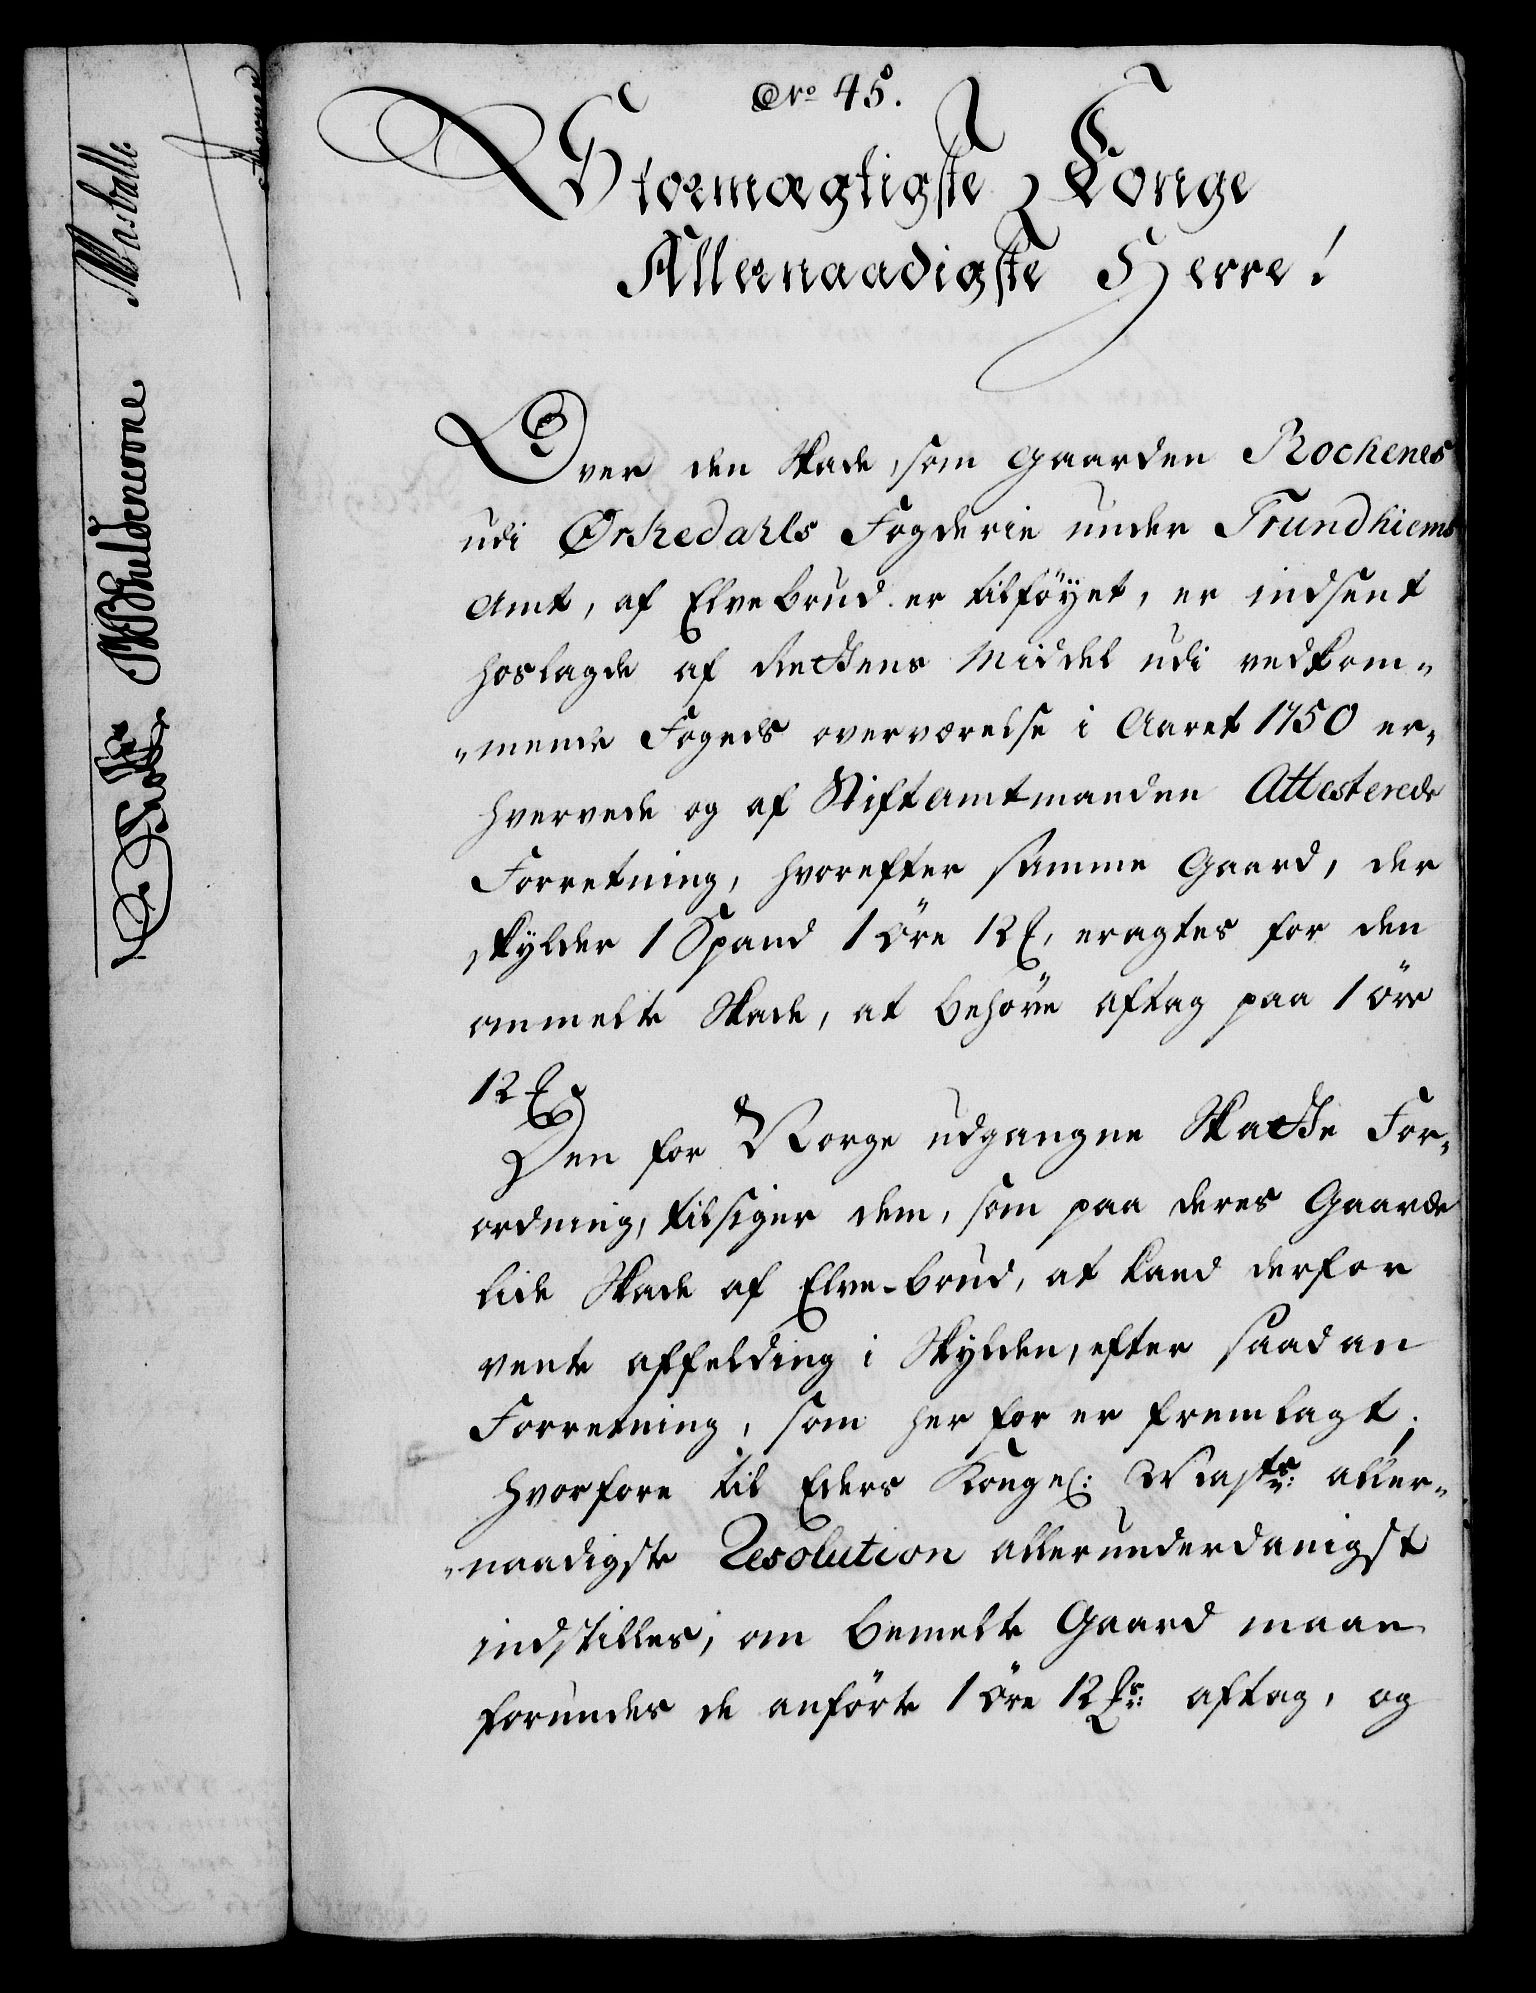 No 45.
Stormægtigste Konge
Allernaadigste Herre!
Over den Skade, som gaarden Rochenes
udi Ørkedahls Fogderie under Trundhiems
Amt, af Elvebrud er tilföyet, er indsent
hoslagde af Rettens Middel udi vedkom-
-mende Fogeds overværelse i Aaret 1750 er-
hvervede og af Stiftamtmanden Attesterede
Forretning, hvorefter samme Gaard, der
skylder 1 Spand 1 Öre 12 , eragtes for den
ommelte Skade, at behöve aftag paa 1 öre
12
Den for Norge udgangne Skatte For-
ordning, tilsiger dem, som paa deres Gaarde
lide Skade af Elve-brud, at kand derfor
vente affelding i Skylden, efter saadan
Forretning, som her for er fremlagt;
hvorfore til Eders Kongel: Majts: aller-
-naadigste Resolution allerunderdanigst
indstilles, om bemelte Gaard maae
forundes de anförte 1 Öre 12 aftag, og